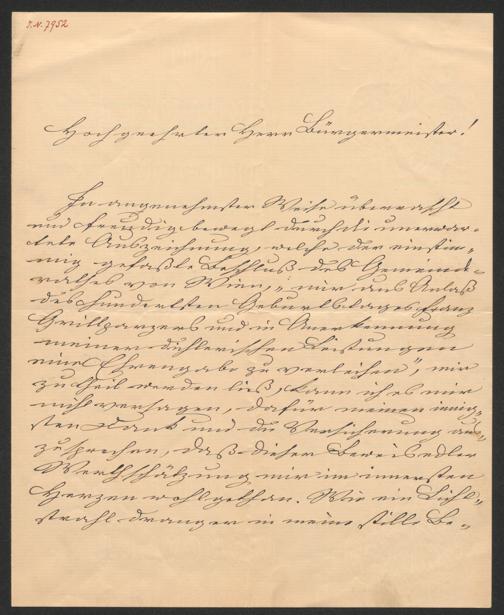 I. N. 7952
Hochgeehrter Herr Bürgermeister!
In angenehmster Weise überrascht
und freudig bewegt durch die unerwar-
tete Auszeichnung, welche der einstim-
mig gefaßte Beschluß des Gemeinde-
rathes von Wien, „mir aus Anlaß
des hundertsten Geburtstages Franz
Grillparzers und in Anerkennung
meiner künstlerischen Leistungen
eine Ehrengabe zu verleihen", mir
zu Theil werden ließ, kann ich es mir
nicht versagen, dafür meinen innig-
sten Dank und die Versicherung aus-
zusprechen, daß dieser Beweis edler
Werthschätzung mir im innersten
Herzen wohlgethan. Wie ein Licht-
strahl drang er in meine stille Be-